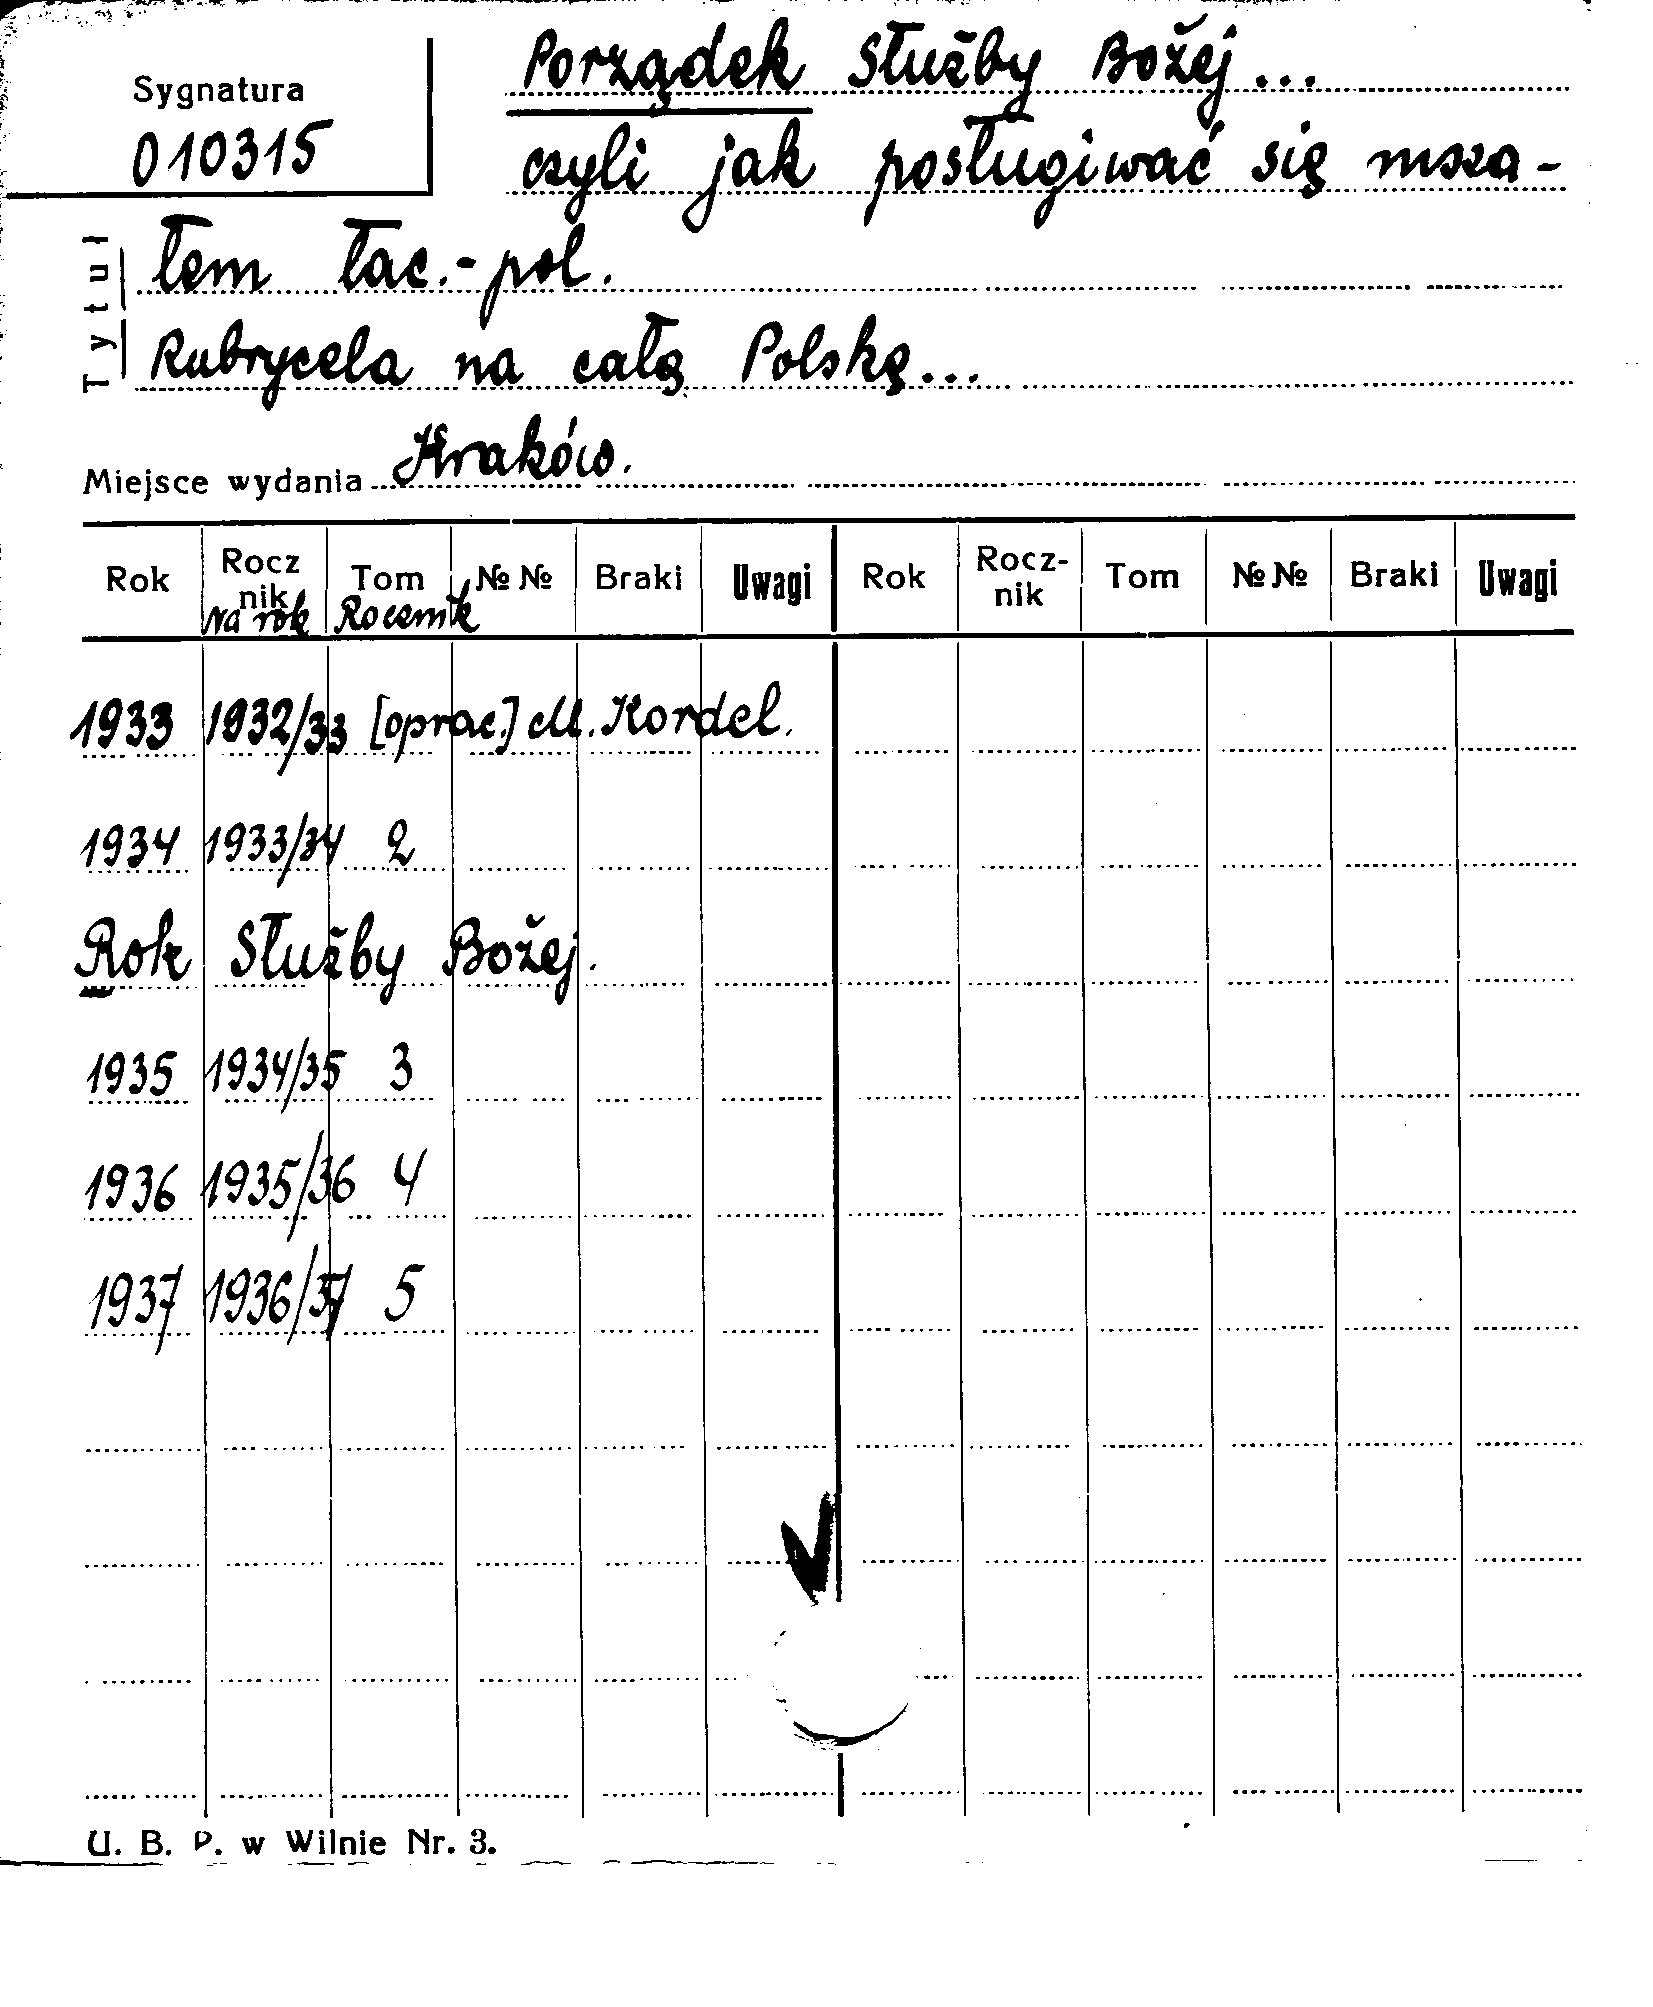 Sygnatura
010315
Porządek Służby Bożej...
czyli jak posługiwać się msza-
łem łac.-pol.
Rubrycela na całą Polskę...
Tytuł
Miejsce wydania Kraków.
Rok Rocz nik Tom №№ Braki Uwagi Rok Rocz- nik Tom №№ Braki Uwagi
Na rok Rocznik
1933 1932/33 [oprac.] M. Kordel.
1934 1933/34 2
Rok Służby Bożej.
1935 1934/35 3
1936 1935/36 4
1937 1936/37 5
U. B. P. w Wilnie Nr. 3.